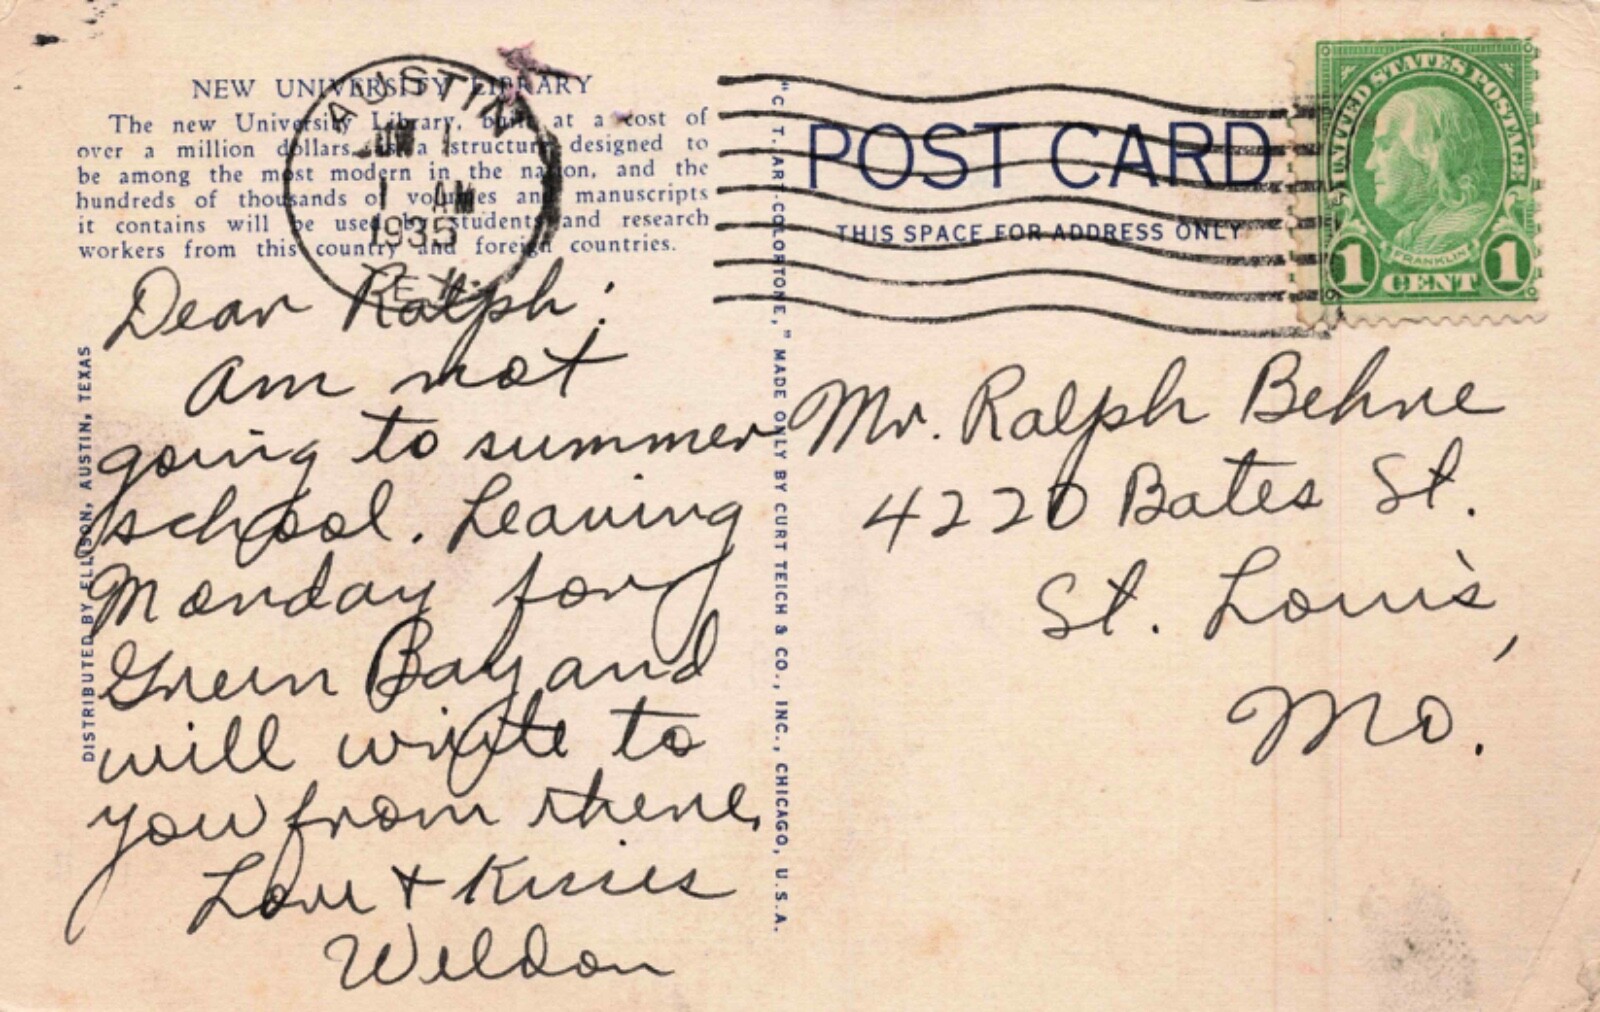 NEW UNIVERSITY LIBRARY
The new University Library, built at a cost of
over a million dollars, is a structure designed to
be among the most modern in the nation, and the
hundreds of thousands of volumes and manuscripts
it contains will be used by students and research
workers from this country and foreign countries.
AUSTIN
1 AM
1935
TEX.
Dear Ralph:
Am not
going to summer
school. Leaving
Monday for
Green Bay and
will write to
you from there.
Love + Kisses
Weldon
DISTRIBUTED BY ELLISON, AUSTIN, TEXAS
"C. T. ART-COLORTONE," MADE ONLY BY CURT TEICH & CO., INC., CHICAGO, U.S.A.
POST CARD
THIS SPACE FOR ADDRESS ONLY
UNITED STATES POSTAGE
FRANKLIN
1 CENT 1
Mr. Ralph Behne
4220 Bates St.
St. Louis,
Mo.